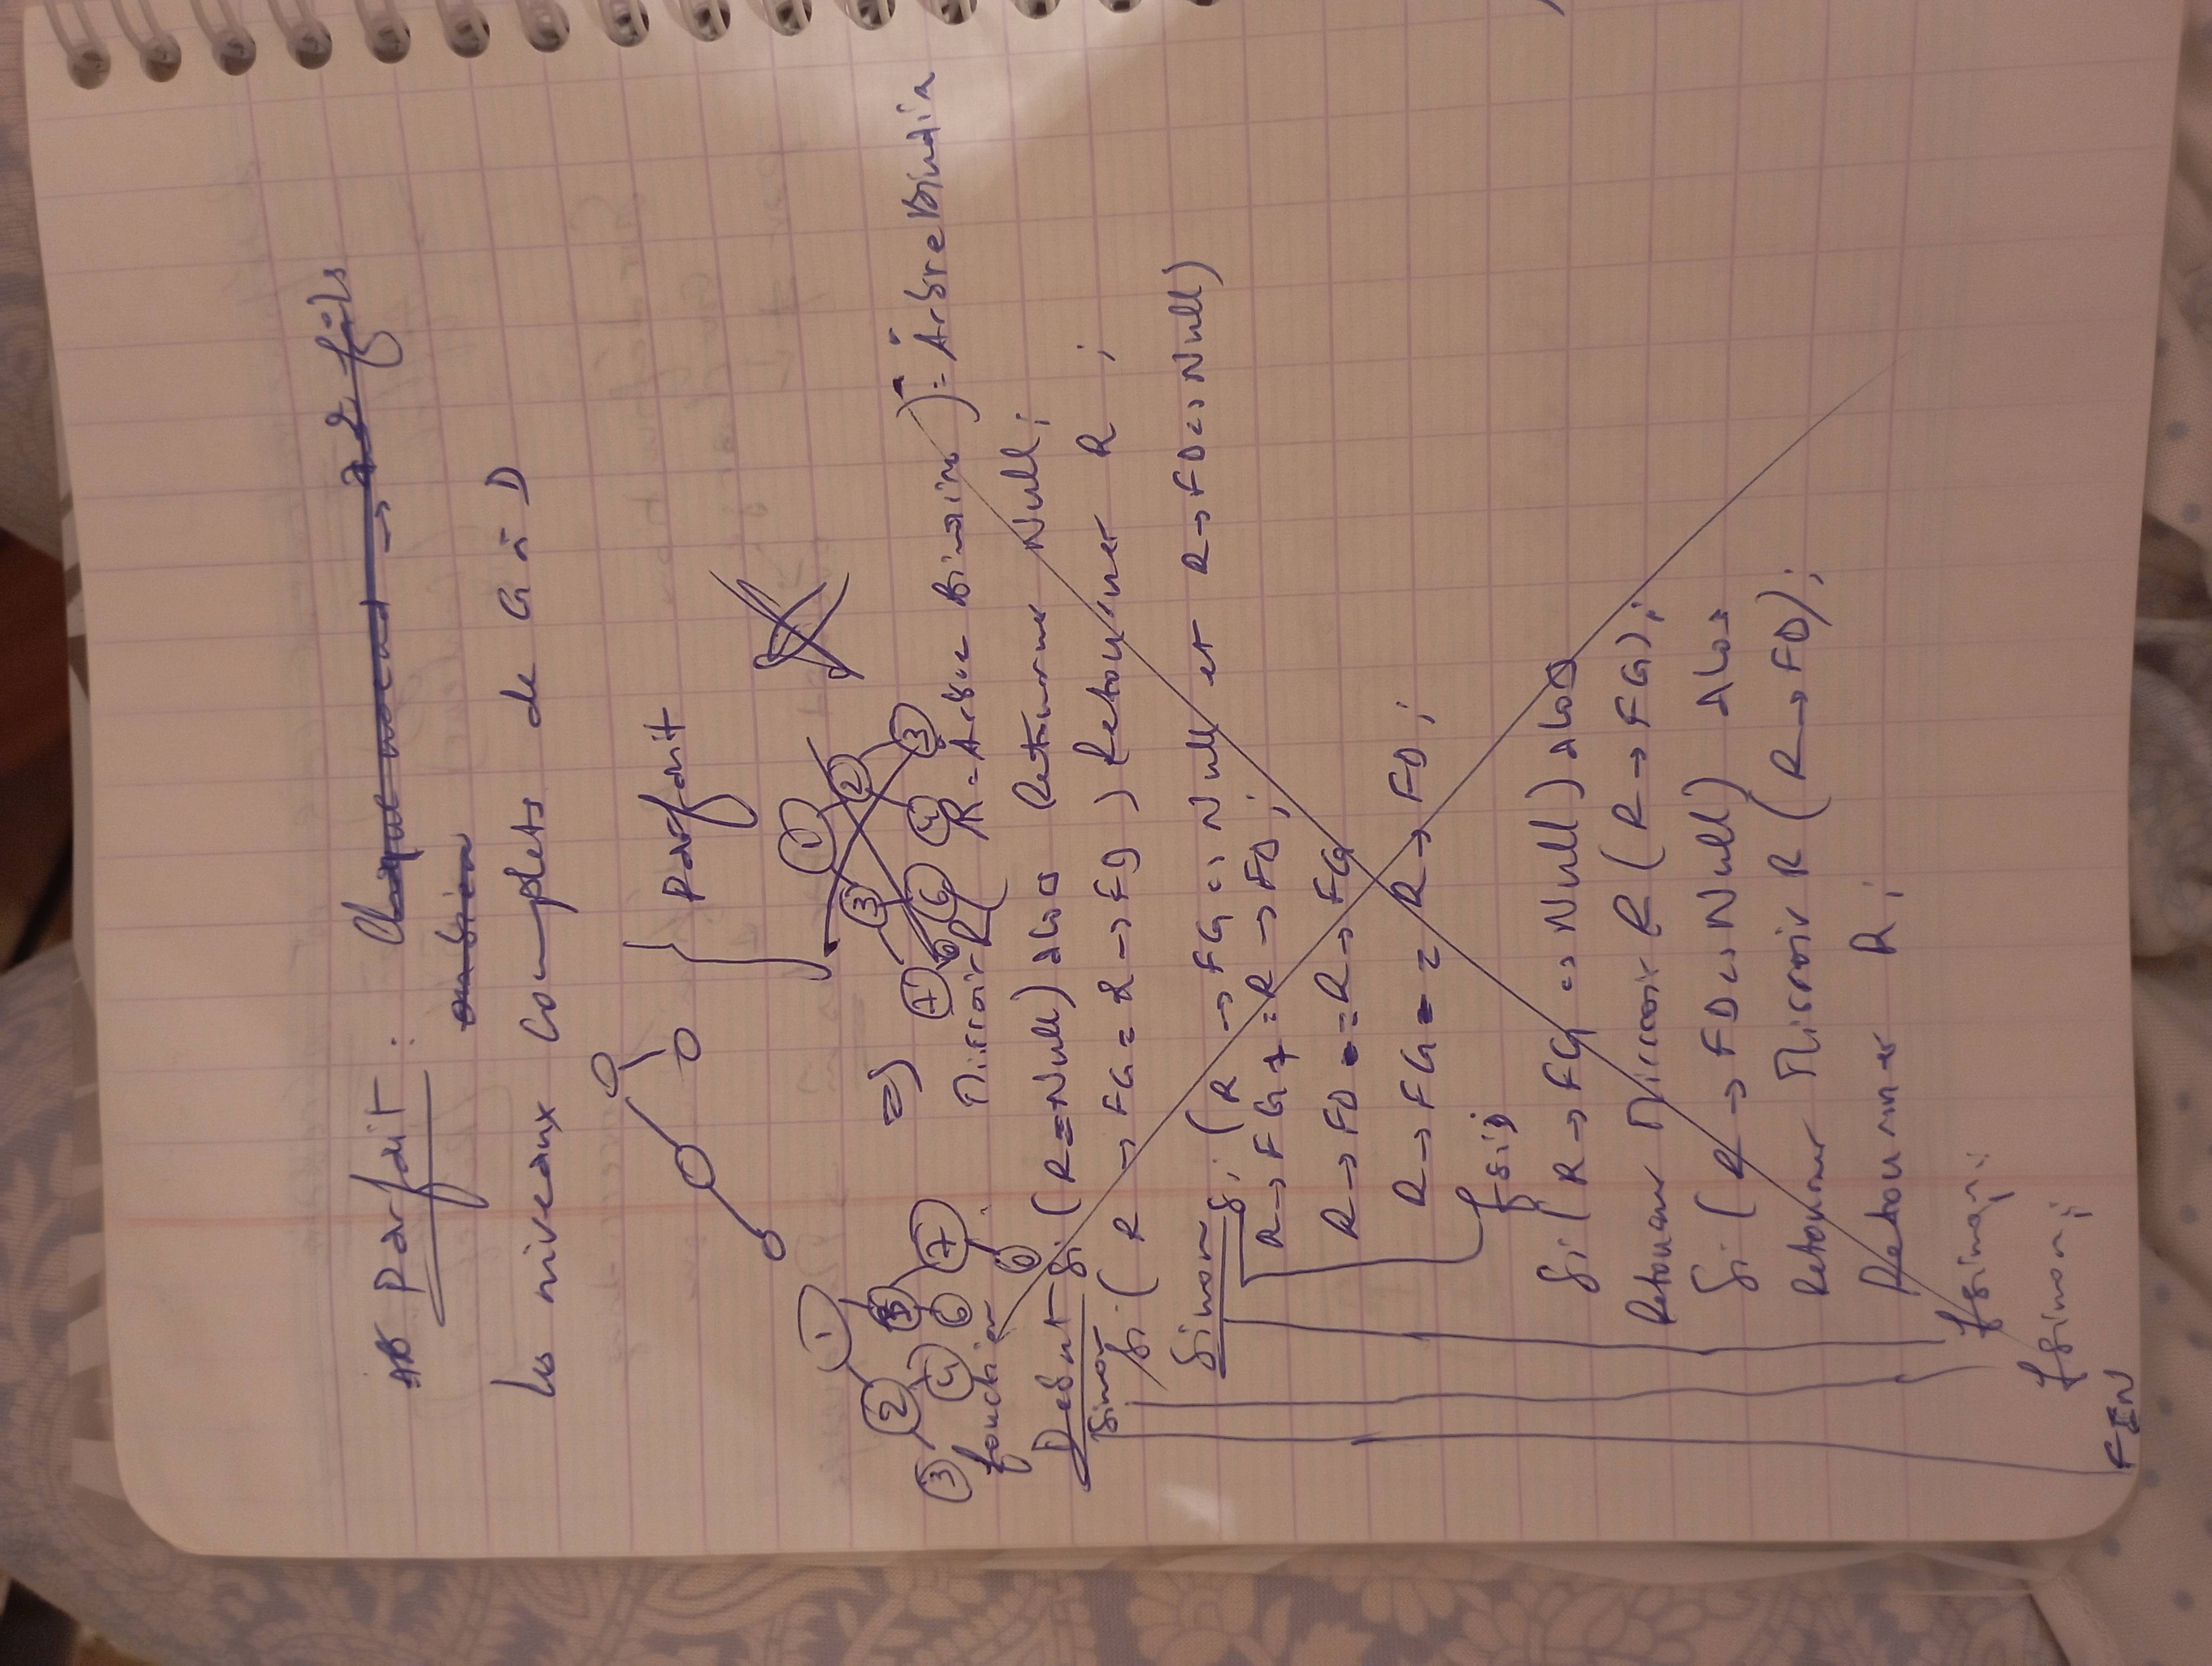 AB Parfait : Chaque noeud → 2 fils
ou bien
les niveaux complets de G à D
Parfait
1
2 3
3 4 6 7
6
=>
1
3 2
7 6 4 3
6
fonction MirroirR( R = Arbre Binaire ) = Arbre Binair
Debut Si (R=Null) alos Retourner Null;
Sinon
Si ( R → FG = R → FD ) Retourner R ;
Sinon Si (R → FG <> Null et R → FD <> Null)
R → FG + = R → FD ;
R → FD - = R → FG
R → FG - = R → FD ;
fsi;
Si (R → FG <> Null) alos
Retourner Mirroir R (R → FG);
Si (R → FD <> Null) Alos
Retourner Mirroir R (R → FD);
Retourner R ;
fsinon;
fsinon;
FIN